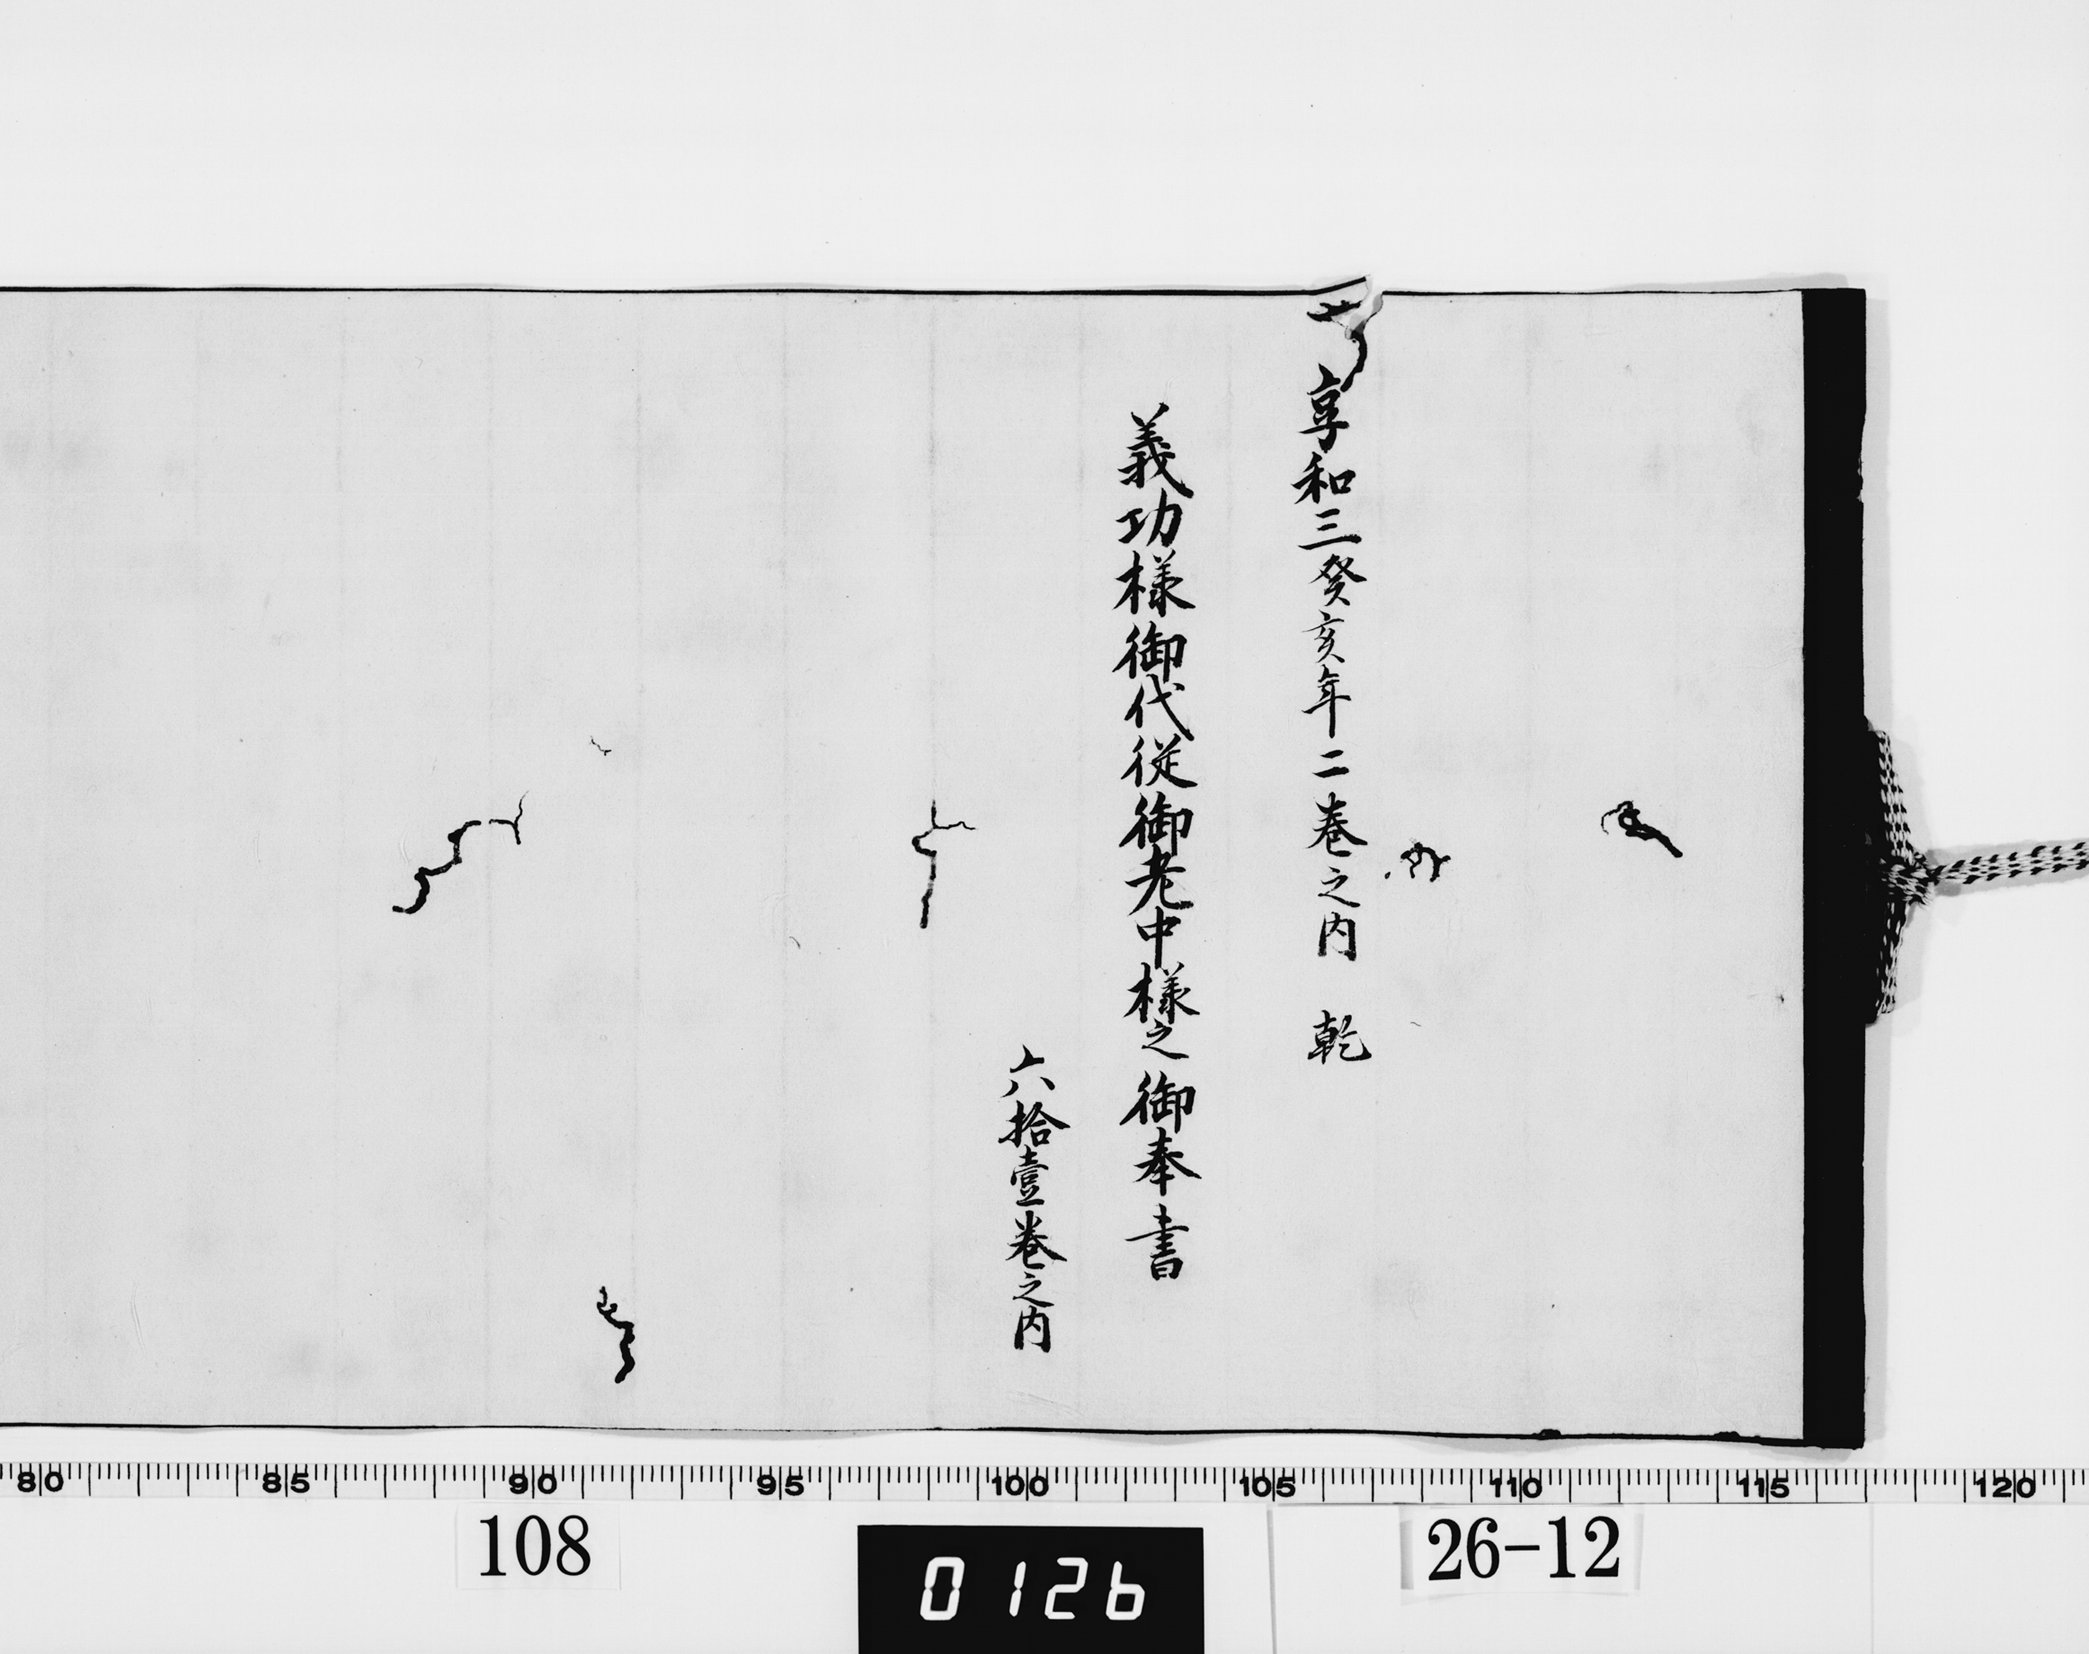 享和三癸亥年二巻之内　乾
義功様御代従御老中様之御奉書
六拾壹巻之内
80 85 90 95 100 105 110 115 120
108
0126
26-12